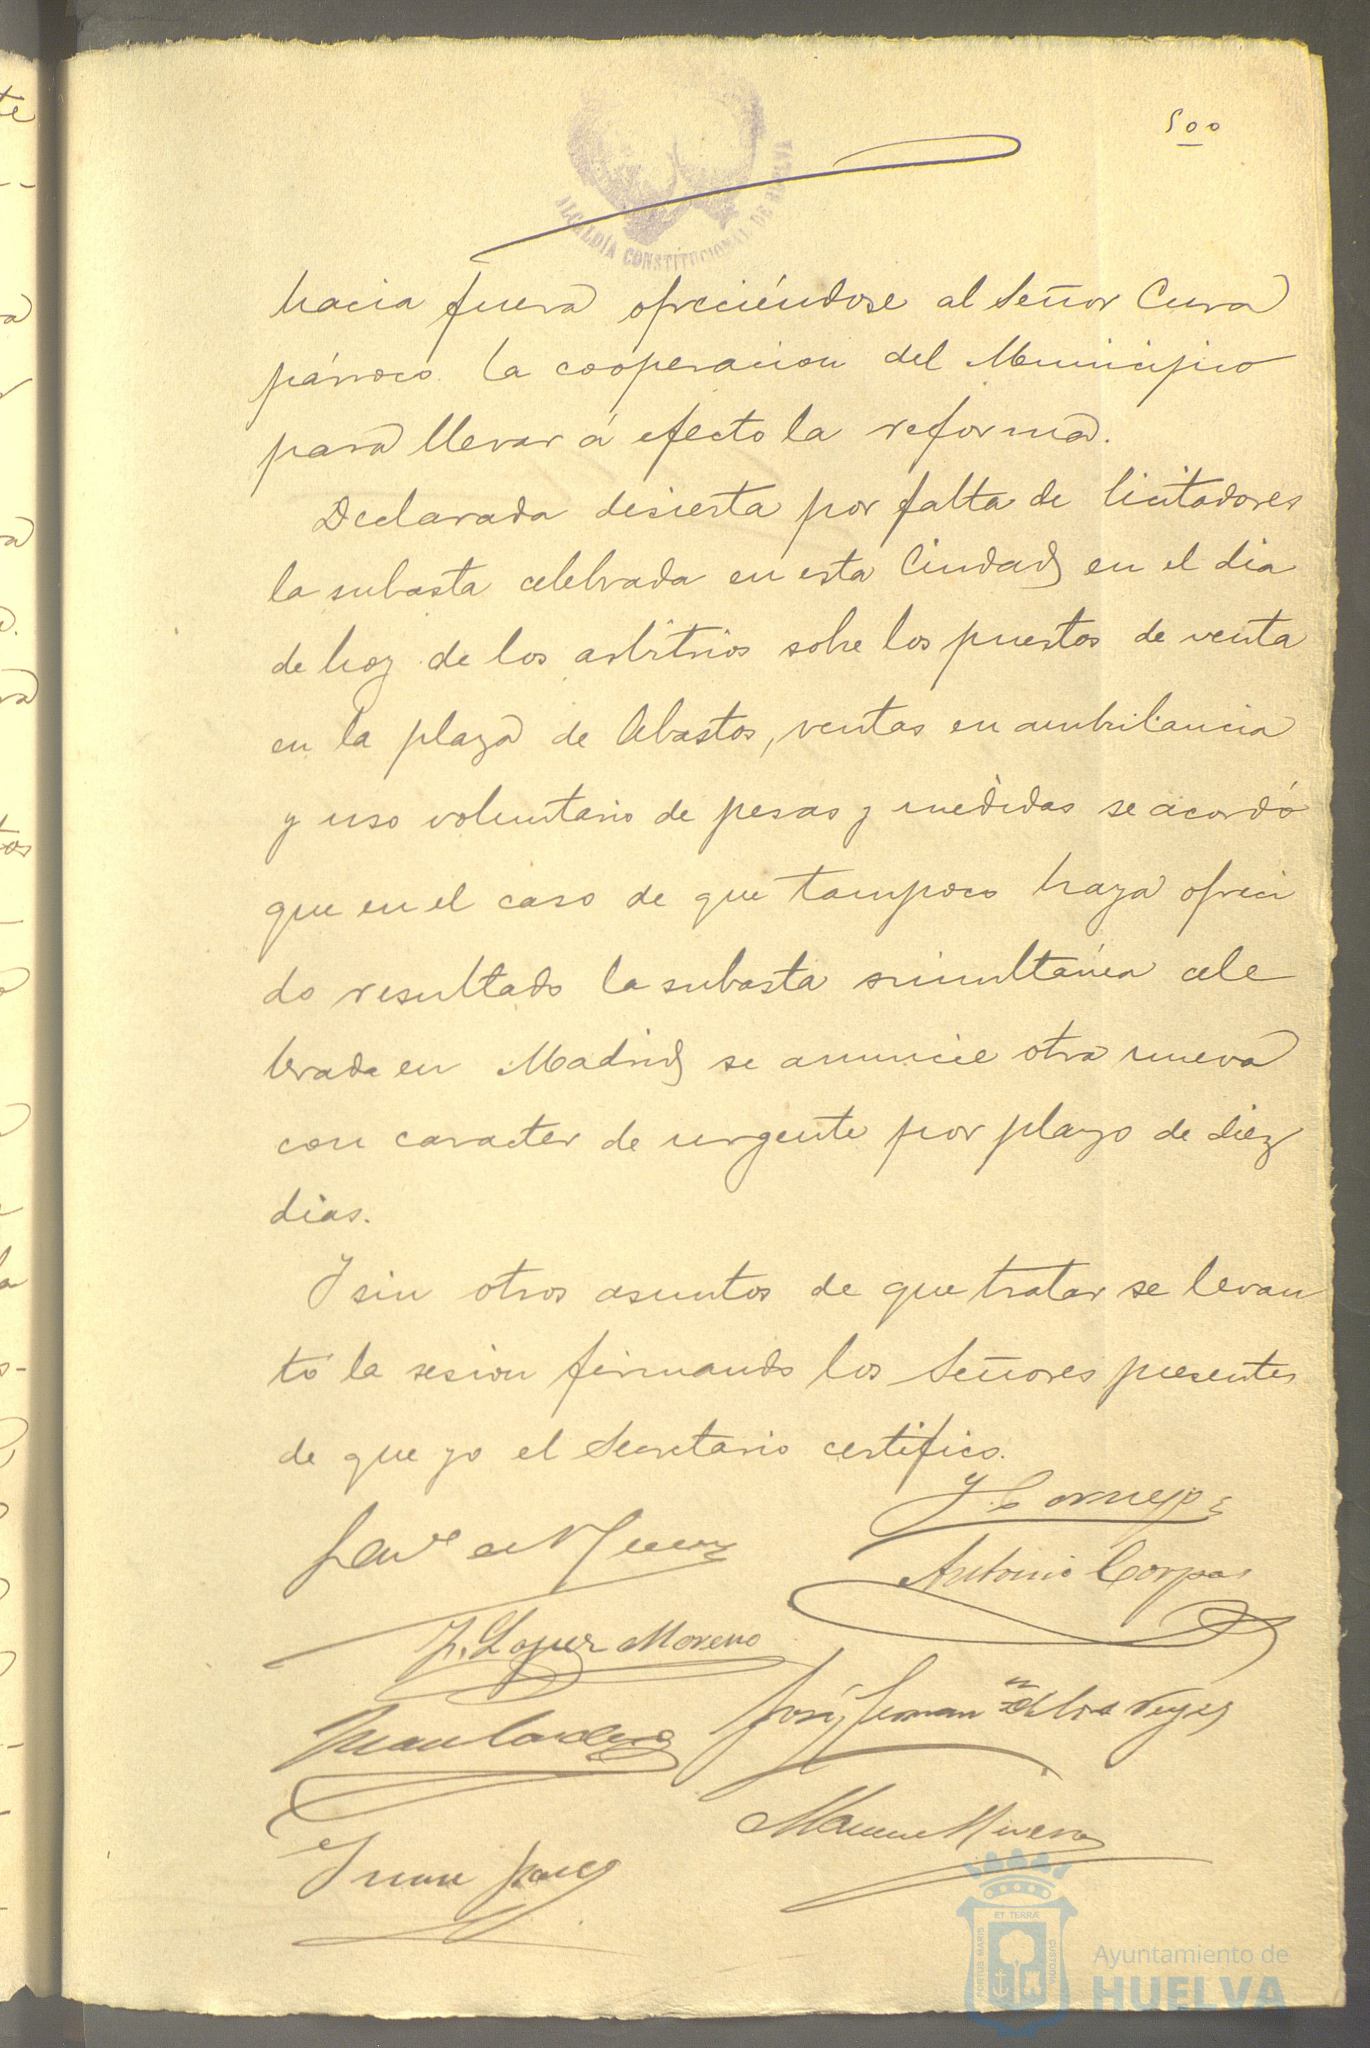 500
ALCALDÍA CONSTITUCIONAL DE HUELVA
hacia fuera ofreciéndose al Señor Cura
párroco la cooperacion del Municipio
para llevar á efecto la reforma.
Declarada desierta por falta de licitadores
la subasta celebrada en esta Ciudad en el dia
de hoy de los arbitrios sobre los puestos de venta
en la plaza de Abastos, ventas en ambulancia
y uso voluntario de pesas y medidas se acordó
que en el caso de que tampoco haya ofreci
do resultado la subasta simultánea cele
brada en Madrid se anuncie otra nueva
con caracter de urgente por plazo de diez
dias.
Y sin otros asuntos de que tratar se levan
tó la sesion firmando los Señores presentes
de que yo el Secretario certifico.
Antonio Corpas
J. Lopez Moreno
José
Manuel Rivera
Juan
PORTUS MARIS ET TERRÆ CUSTODIA
Ayuntamiento de
HUELVA